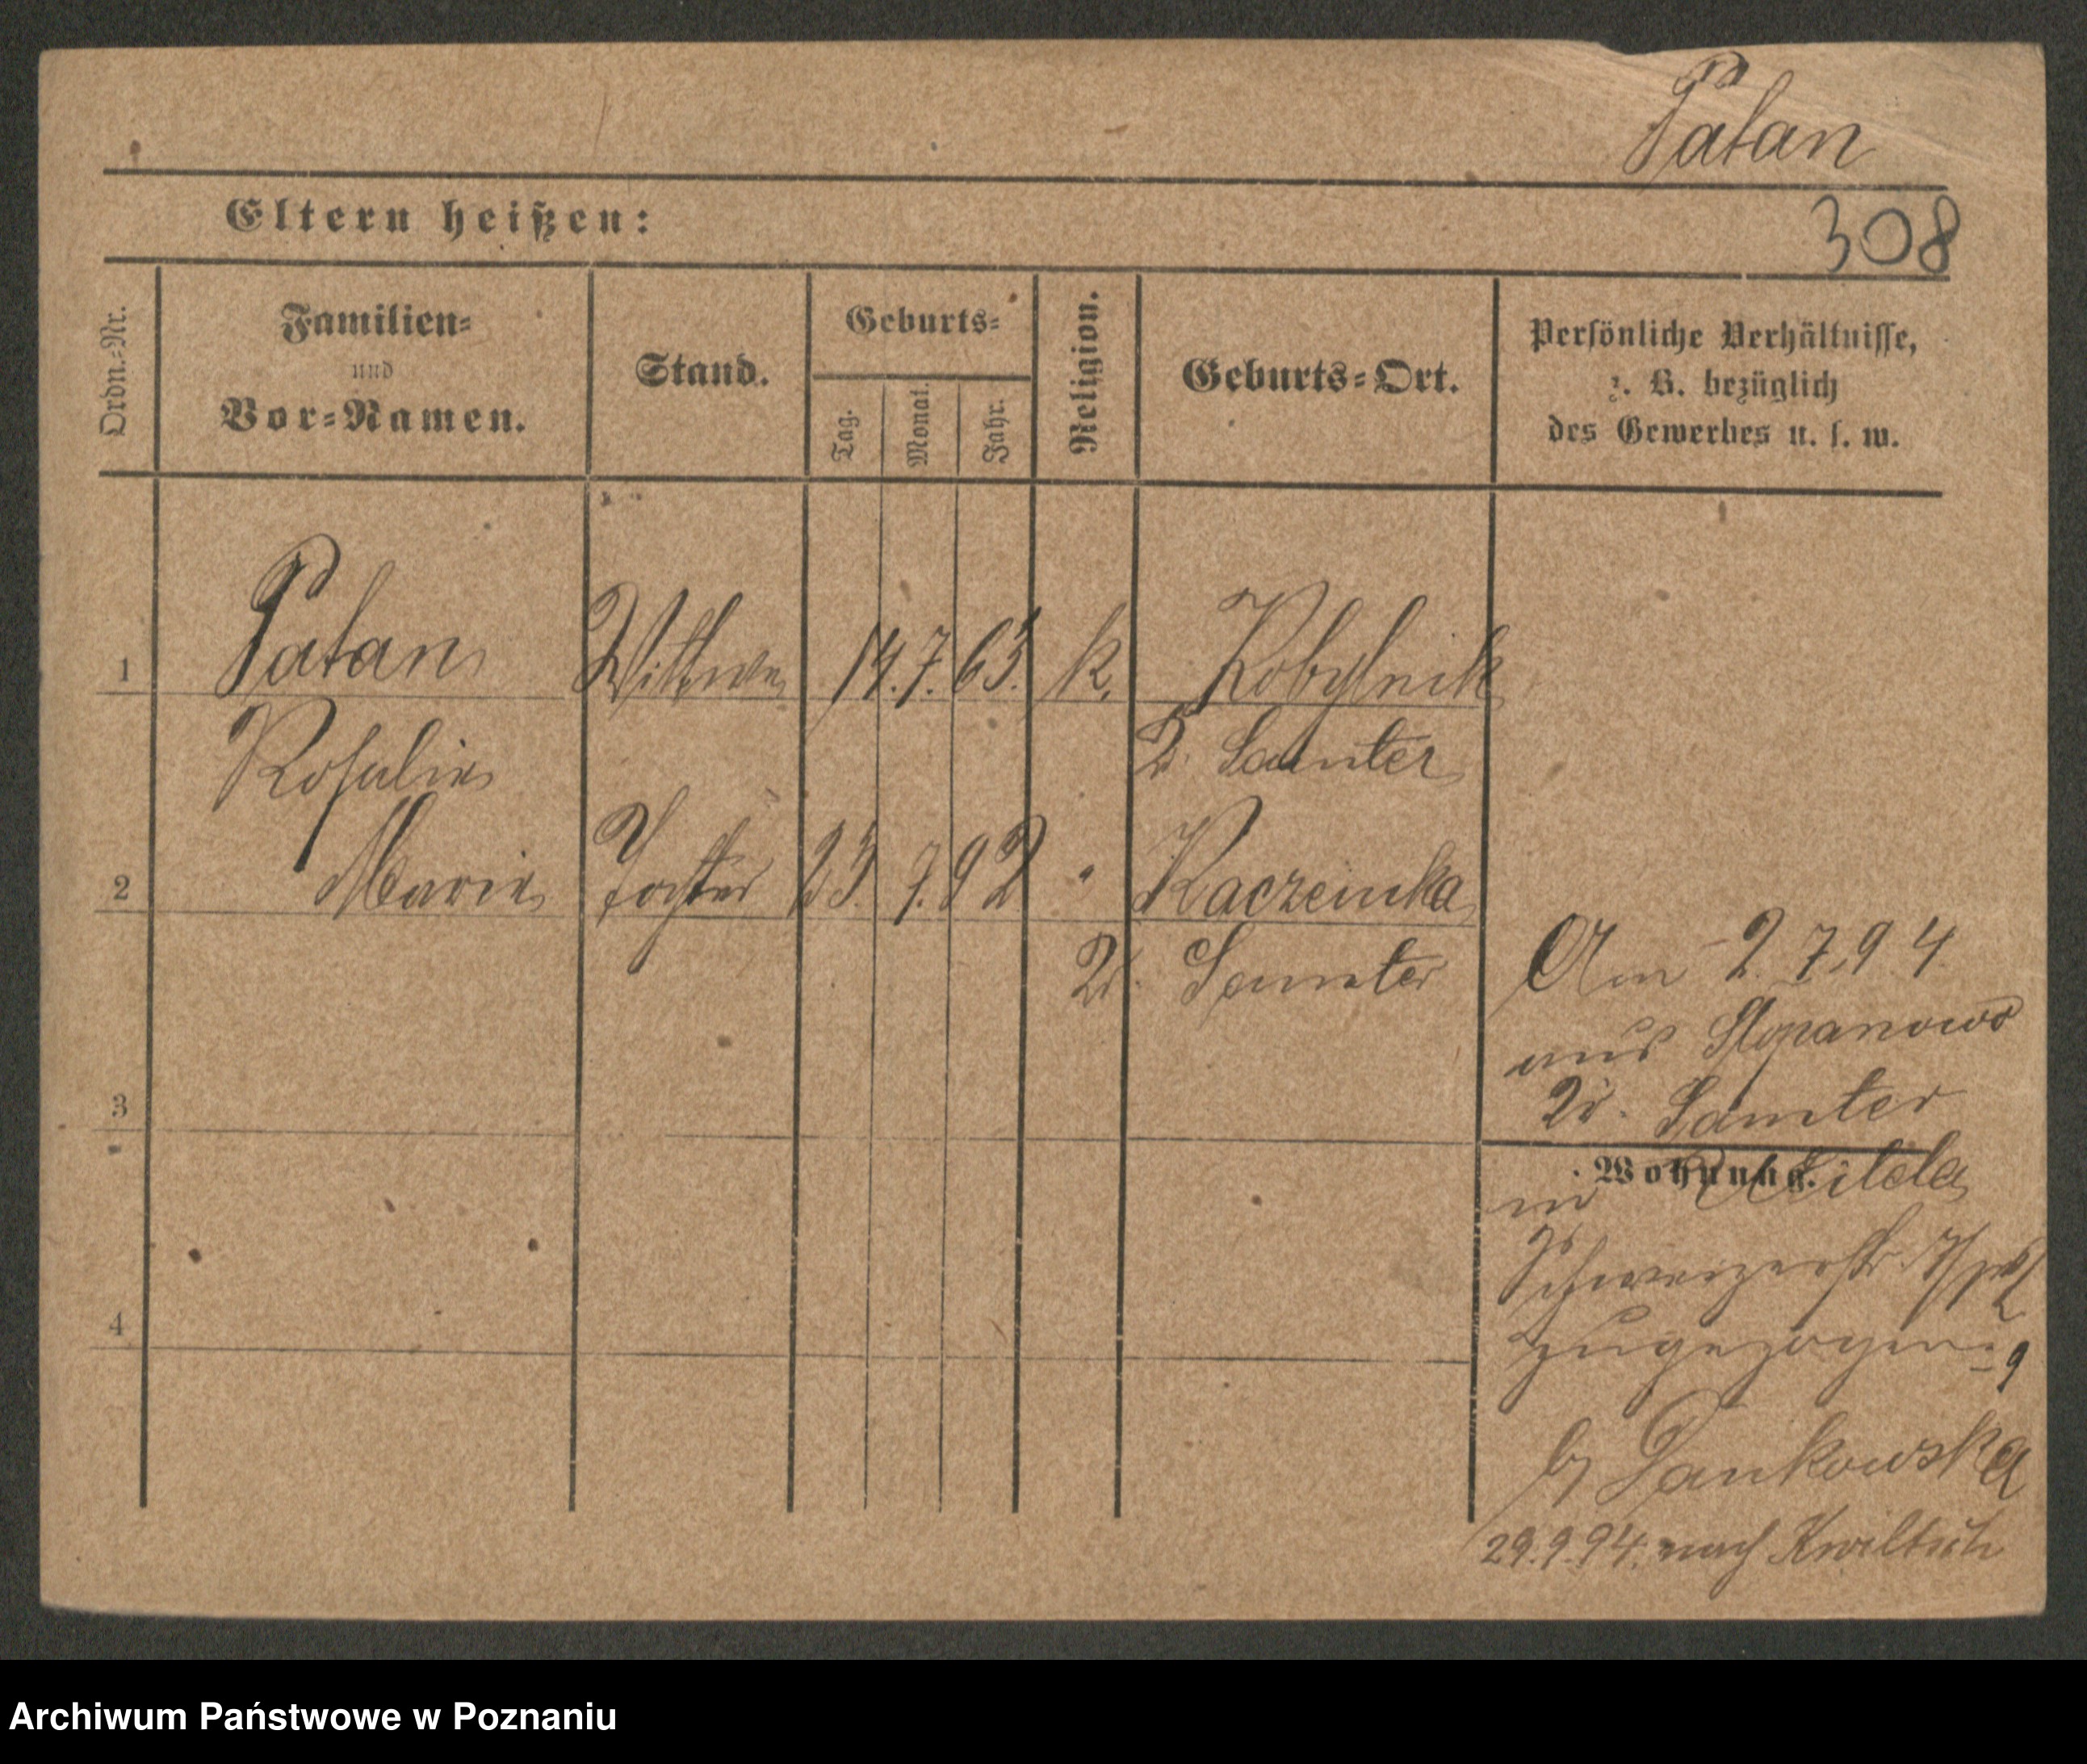 Patan
Eltern heißen:
308
Ordn.-Nr.
Familien-
und
Vor-Namen.
Stand.
Geburts-
Tag.
Monat.
Jahr.
Religion.
Geburts-Ort.
Persönliche Verhältnisse,
z. B. bezüglich
des Gewerbes u. s. w.
1 Patan Wittwe 14. 7. 63. k. Kobylnik
Rosalie Kr. Samter
2 Marie Tochter 23. 7. 92 " Kaczeinka
Kr. Samter
Am 2. 7. 94.
aus Stopanowo
Kr. Samter
3
Wohnung.
in Wilda
Schweizerstr. 7
zugezogen
4
by Pankowska
29. 9. 94. nach Kwiltsch
Archiwum Państwowe w Poznaniu